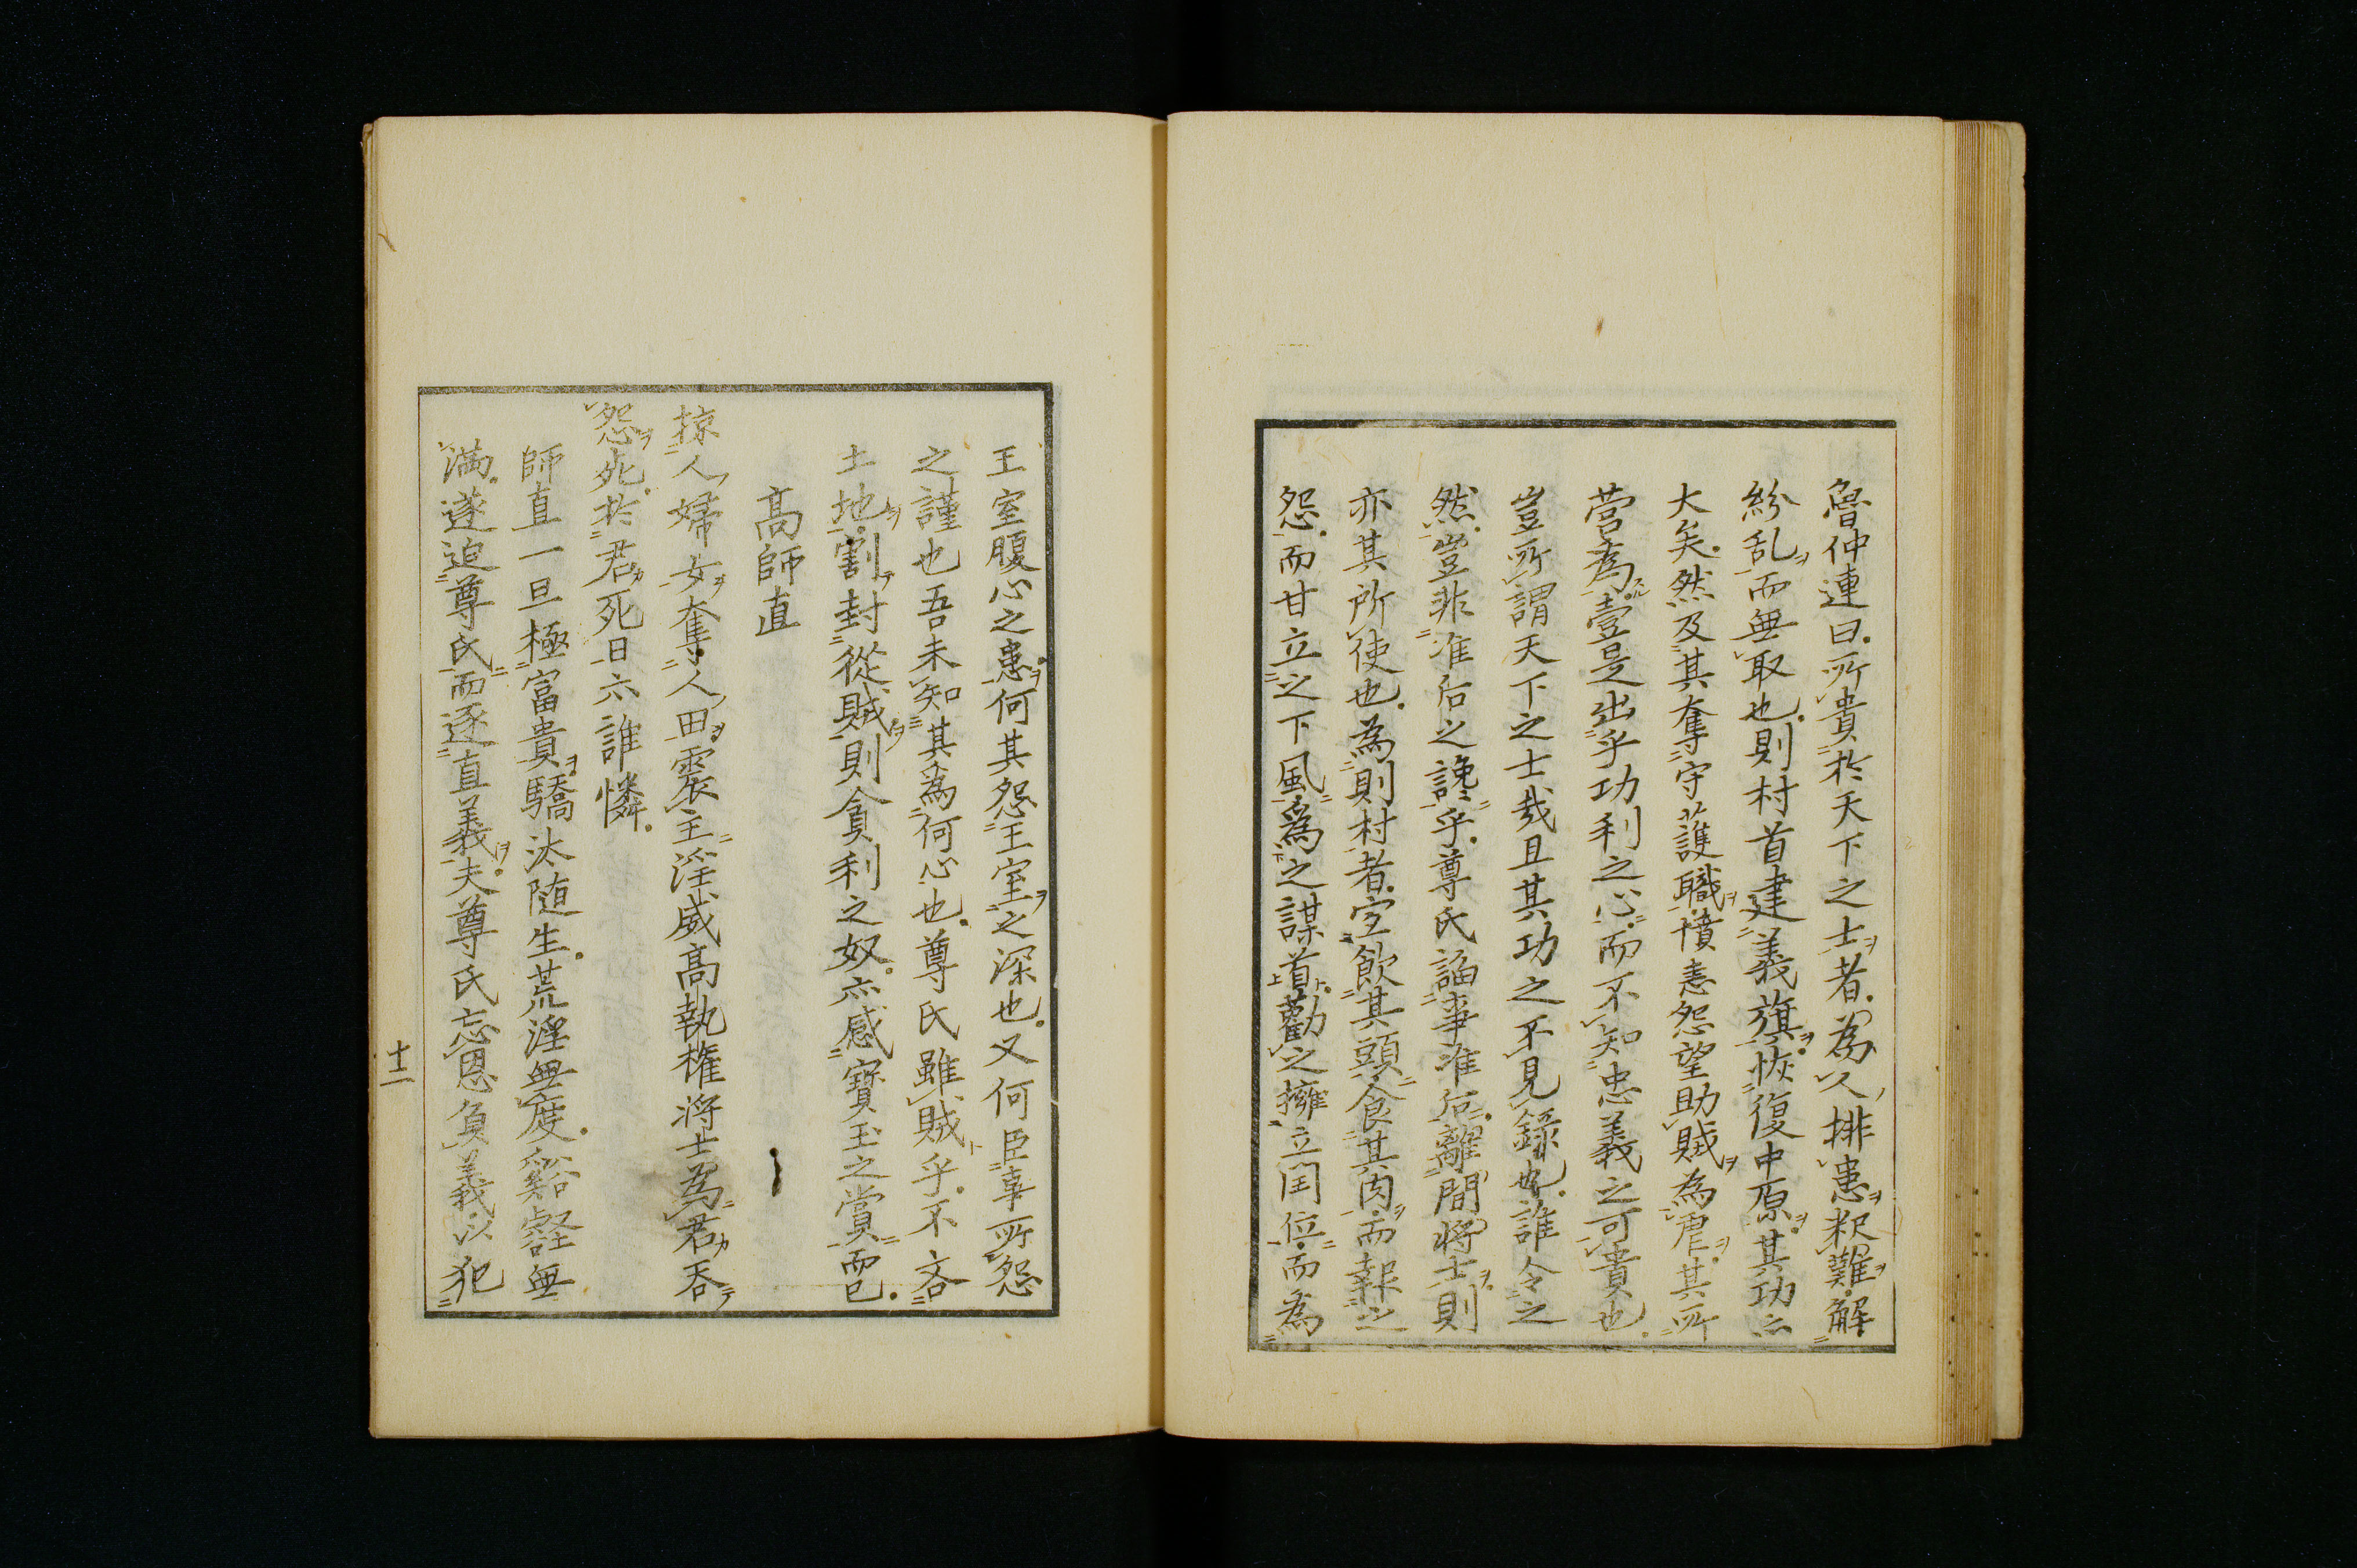 魯仲連曰所貴於天下之士者為人排患釈難解
紛乱而無取也則村首建義旗恢復中原其功亦
大矣然及其奪守護職憤恚怨望助賊為虐其所
営為壹是出乎功利之心而不知忠義之可貴也
豈所謂天下之士哉且其功之不見録也誰令之
然豈非准后之讒乎尊氏諂事准后離間将士則
亦其所使也為則村者宜飲其頭食其肉而報之
怨而甘立之下風為之謀首勸之擁立閏位而為
王室腹心之患何其怨王室之深也又何臣事所怨
之謹也吾未知其為何心也尊氏雖賊乎不吝
土地割封從賊則貪利之奴亦感寶玉之賞而已
高師直
掠人婦女奪人田震主淫威高執権将士為君呑
怨死於君死日亦誰憐
師直一旦極富貴驕汰随生荒淫無度谿壑無
満遂迫尊氏而逐直義夫尊氏忘恩負義以犯
十二